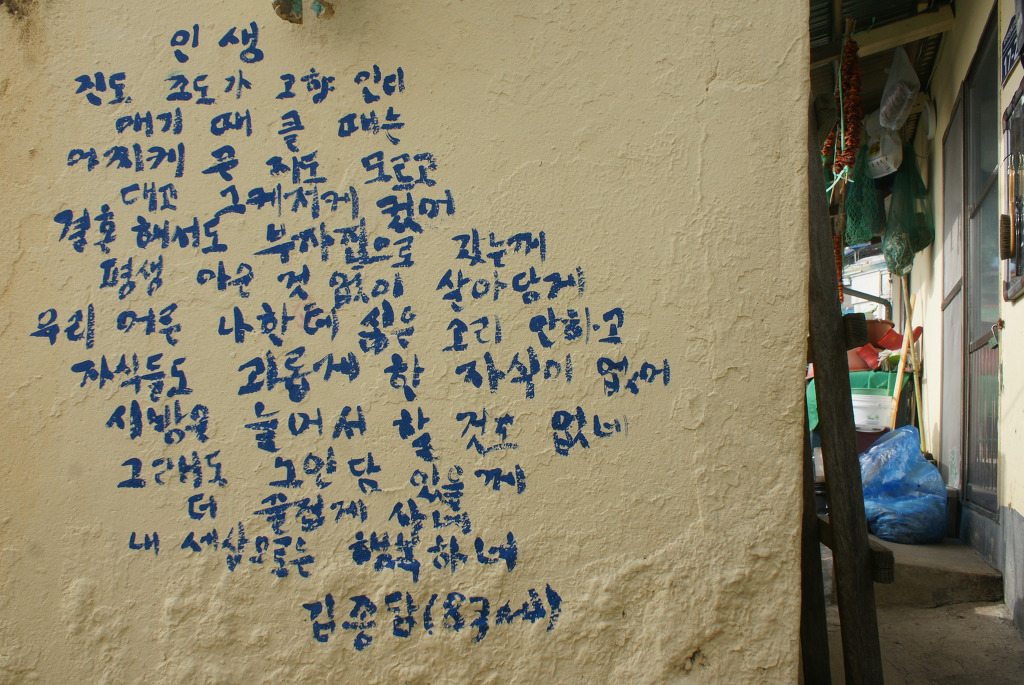 인생
진도 조도가 고향인디
애기 때 클 때는
어찌케 큰 지도 모르고
대고 그케저케 컸어
결혼 해서도 부자집으로 갔는께
평생 아슌 것 없이 살아당께
우리 어른 나한테 싫은 소리 안하고
자식들도 괴롭게 한 자식이 없어
시방은 늙어서 할 것도 없네
그래도 그인담 있을께
더 끌점게 사네
내 세상모르는 행복하네
김종담(83세)